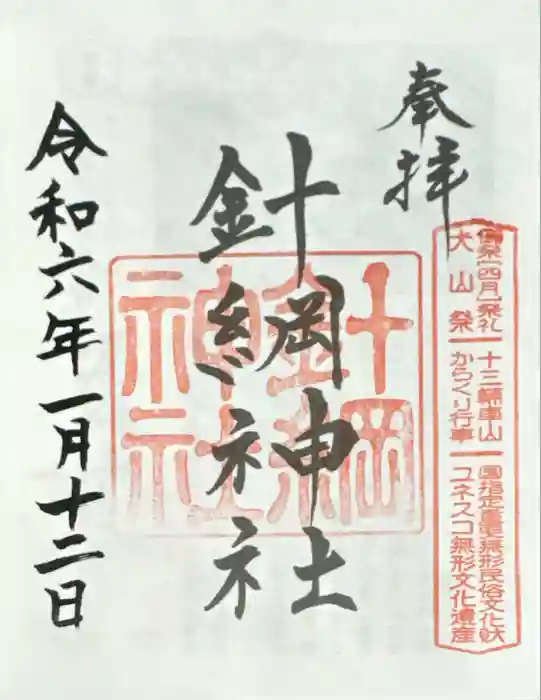 奉拝
例祭[四月]祭礼
犬山祭
十三輌車山
からくり行事
国指定重要無形民俗文化財
ユネスコ無形文化遺産
針綱神社
針綱神社
令和六年一月十二日